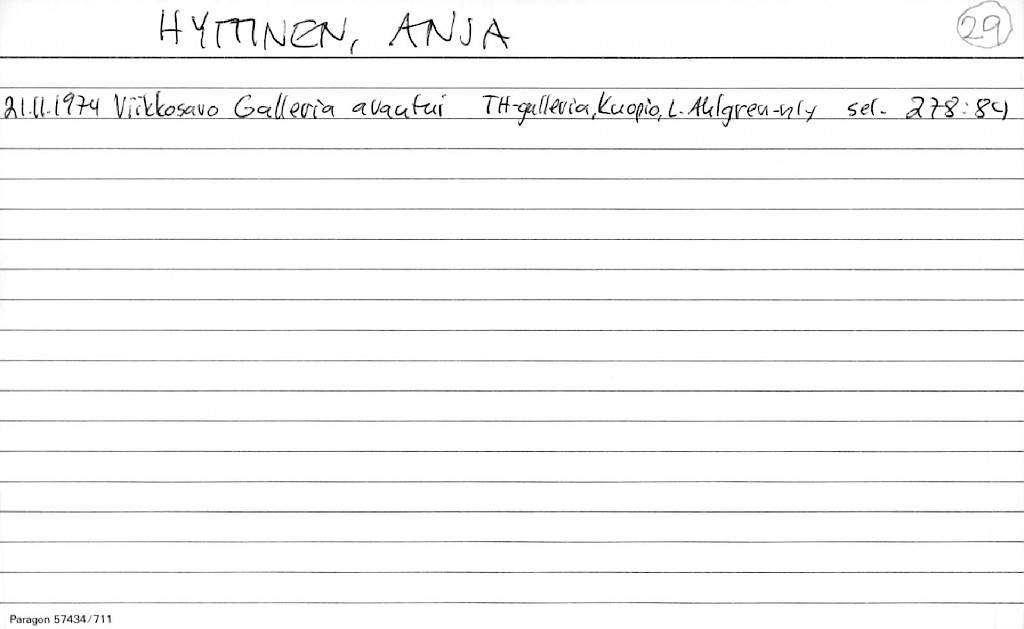 HYTTINEN, ANJA 29
21.11.1974 Viikkosavo Galleria avautui TH-galleria, Kuopio, L. Ahlgren-nly sel. 278:84
Paragon 57434/711